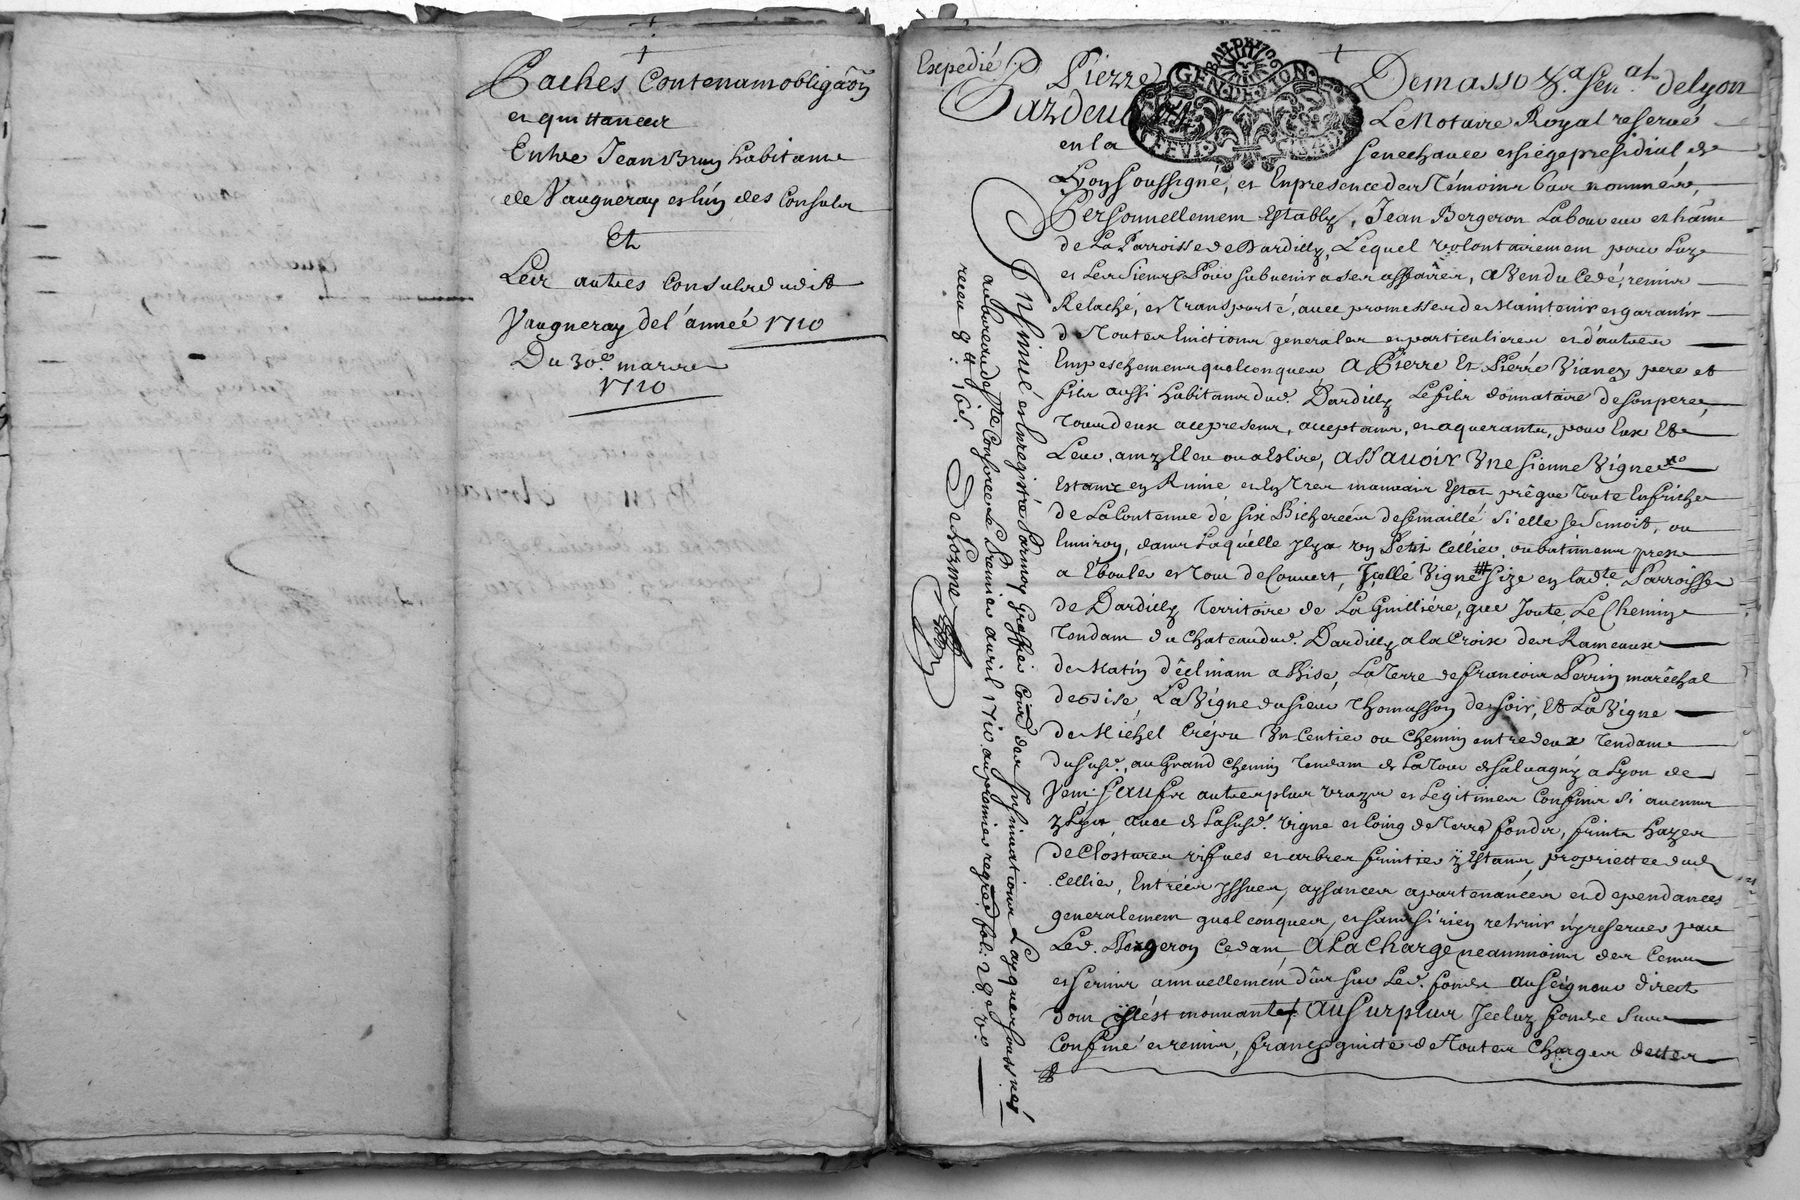 Paches Contenant obligaon
et quittances
Entre Jean Brun habitant
de Vaugneray et lun des Consuls
Et
Les autres Consuls dudit
Vaugneray de l'année 1710
Du 30e. mars
1710
Expedié
Pierre Demasso
Pardeu Le Notaire Royal reservé
en la Senechaucé et siege presidial de
Lyon soussigné, et En presence des Témoins bas nommés,
Personnellement Estably, Jean Bergeron Laboureur et haant
de La Parroisse de Dardilly, Lequel volontairement pour Luy
et Les Siens Pour subvenir a ses affaires, a Vendu Cedé, remis
Relaché, et Transporté, avec promesse de Maintenir et garantir
de Toutes Evictions generales et particulieres et d'autres
Empeschements quelconques A Pierre Et Pierre Vianey pere et
fils aussi habitants dud. Dardilly Le fils donnataire de son pere,
Tous deux cy presents, acceptants, et aquerants, pour Eux Et
Leurs amy Eleu ou a Eslire, ASSAVOIR Vne sienne Vigne
Estant en Ruine et En Tres mauvais Estat, presque Toute En friche
de La Contenue de six Bicherées de semaille si elle se Semoit, ou
Environ, dans Laquelle Il y a vn Petit Cellier ou batiment prest
a Eboule et Tout de Couvert, Icelle Vigne Size en ladte Parroisse
de Dardilly Territoire de La Guilliére, que Joute Le Chemin
Tendant du Chateau dud. Dardilly a la Croix des Rameaux
de Matin déclinant a Bise, La Terre de francois Perrin maréchal
de Bise, La Vigne du sieur Thomasson de soir, Et La Vigne
de Michel Crépu Vn Centier ou Chemin entre deux Tendant
du susd. au Grand Chemin Tendant de La Tour de Salvagny a Lyon de
Vent. SAUFS autres plus vrays et Legitimes Confins si aucuns
y sont avec de La susd. vigne et Coing de Terre fonds, fruits hayes
de Clostures vifves et arbres fruitiers y Estant, proprietté dud.
Cellier, Entrées yssues, aysances apartenances et dependances
generalement quelconques, et sans si rien retenir ny reserver par
Led. Bergeron Cedant, A LA Charge neanmoins des Cens
et servis annuellement dûs sur Led. fonds au Seigneur direct
dont il est mouvant AU Surplus Iceluy fonds Sus
Confiné et remis, franc quitte de Toutes Charges dettes
Insinué et Enregistré Par moy Greffier Com̃is des Insinuations Layques soussigné
au bureau de ste Consorce Le Premier avril 1710 au premier regre fol: 28. vo.
receu 8tt 16s. Delorme